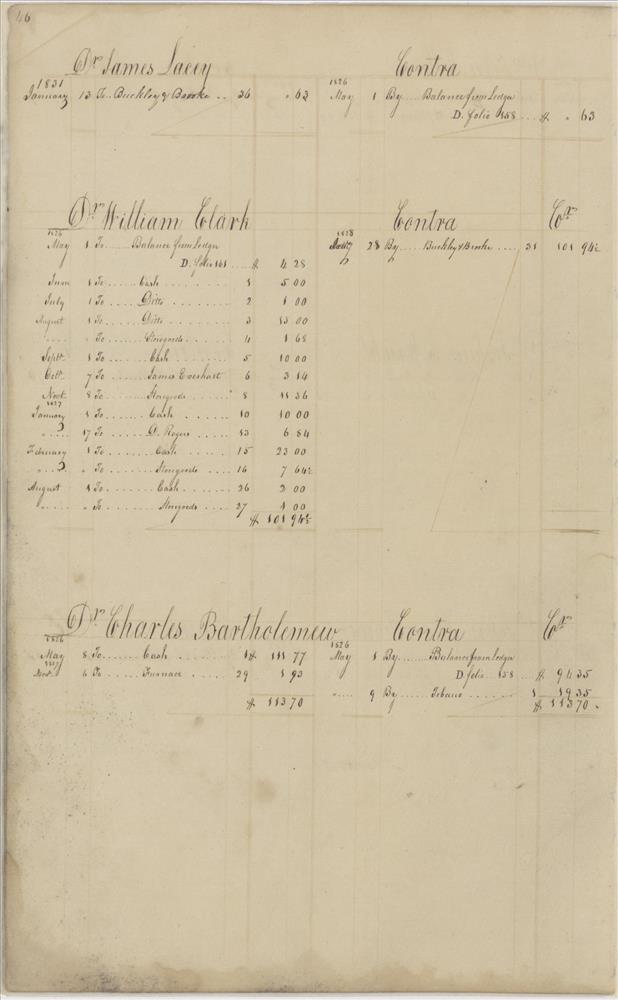 46
Dr. James Lacey
1831
January 13 To .. Buckley & Brooke .. 36 " 63
Contra
1826
May 1 By .... Balance from Ledga
D. folio 158 .... $ " 63
Dr. William Clark
1826
May 1 To ..... Balance from Ledga
D. folio 161 ..... $ 4 28
June 1 To ...... Cash ........ 1 5 00
July 1 To ...... Ditto ........ 2 1 00
August 1 To ...... Ditto ........ 3 13 00
" .... " To ...... Storegoods .... 4 1 68
Sept. 1 To ...... Cash ...... 5 10 00
Octr. 7 To ...... James Everhart 6 3 14
Novr. 8 To ...... Storegoods .... 8 11 36
1827
January 1 To ...... Cash ...... 10 10 00
" .... 17 To ...... D. Rogers .... 13 6 84
February 1 To ...... Cash .... 15 23 00
" .... " To ...... Storegoods .... 16 7 64½
August 1 To ...... Cash ...... 26 3 00
" .... " To ...... Storegoods .... 27 1 00
$ 101 94½
Contra Cr.
1828
28 By .... Buckley & Brooke .... 31 101 94½
Dr. Charles Bartholemew
1826
May 8 To ...... Cash ...... 1 $ 111 77
1827
Novr. 6 To ...... Furnace .... 29 1 93
$ 113 70
Contra Cr.
1826
May 1 By ..... Balance from Ledga
D. folio .. 158 ... $ 94 35
" .... 9 By ...... Tobacco ...... 1 19 35
$ 113 70